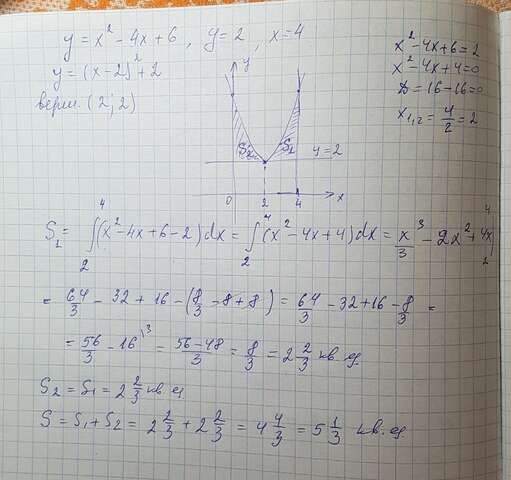 y = x² - 4x + 6, y = 2, x = 4
y = (x-2)² + 2
верш. (2; 2)
x² - 4x + 6 = 2
x² - 4x + 4 = 0
D = 16 - 16 = 0
x₁,₂ = 4/2 = 2
y
S₂ S₁ y = 2
0 2 4 x
S₁ = ∫₂⁴ (x² - 4x + 6 - 2) dx = ∫₂⁴ (x² - 4x + 4) dx = x³/3 - 2x² + 4x |₂⁴
= 64/3 - 32 + 16 - (8/3 - 8 + 8) = 64/3 - 32 + 16 - 8/3 =
= 56/3 - 16^\3 = (56 - 48)/3 = 8/3 = 2 2/3 кв. ед.
S₂ = S₁ = 2 2/3 кв. ед.
S = S₁ + S₂ = 2 2/3 + 2 2/3 = 4 4/3 = 5 1/3 кв. ед.